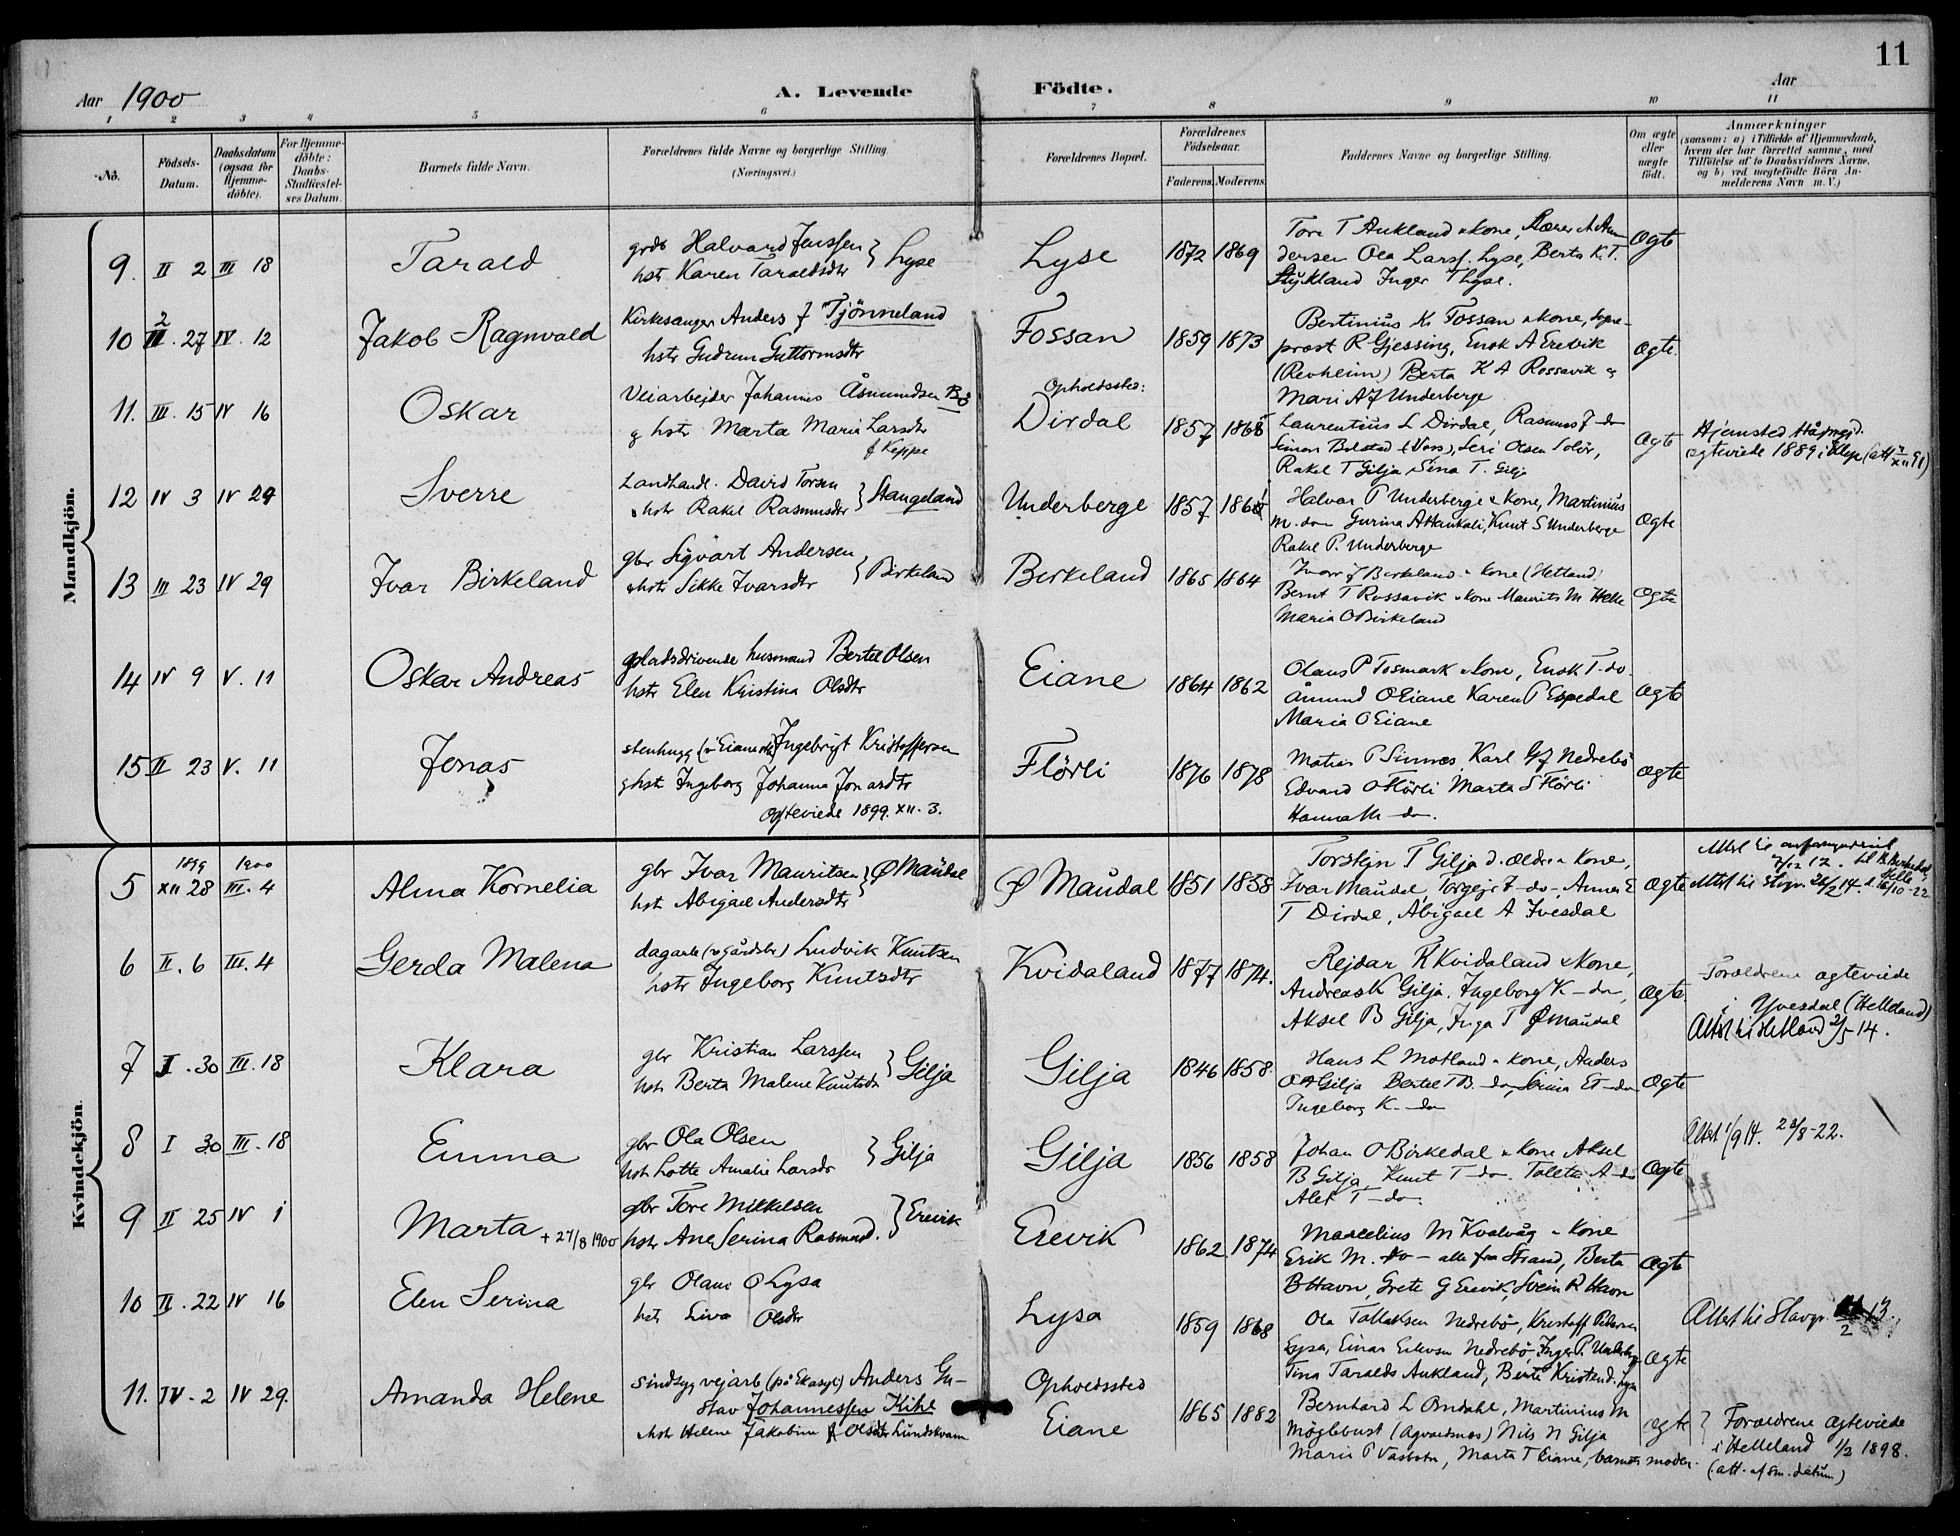 11
Aar 1900
A. Levende Födte.
Aar
1 2 3 4 5 6 7 8 9 10 11
No.
Födsels-Datum.
Daabsdatum (ogsaa for Hjemme-döbte).
For Hjemme-döbte: Daabs-Stadfæstel-ses Datum.
Barnets fulde Navn.
Forældrenes fulde Navne og borgerlige Stilling. (Næringsvei.)
Forældrenes Bopæl.
Forældrenes Födselsaar.
Faderens. Moderens.
Faddernes Navne og borgerlige Stilling.
Om ægte eller uægte födt.
Anmærkninger
(saasom: a) i Tilfælde af Hjemmedaab,
hvem der har forrettet samme, med
Tilföielse af to Daabsvidners Navne,
og b) ved uægtefödte Börn An-
melderens Navn m. V.)
Mandkjön.
9. II 2 III 18 Tarald
grdb Halvard Jenssen } Lyse
hstr Karen Taraldsdtr
Lyse 1872 1869
Tore T Aukland & kone, Lærer A An
dersen Ola Larss. Lyse, Berta K. T.
Inger T Lyse.
Ægte
10 2 III. 27 IV. 12 Jakob Ragnvald
Kirkesanger Anders J Tjönneland
hstr Gudrun Guttormsdtr
Fossan 1859 1873
Bertinius K. Fossan & kone, Sogne-
prest R Gjessing, Enok A Erevik
(Revheim) Berta K A Rossavik &
Mari A J Underberge
ægte.
11. III. 15 IV 16 Oskar
Veiarbejder Johannes Åsmundsen Bö
& hstr Marta Maria Larsdtr
f Keppe
Opholdssted:
Dirdal 1857 1865
Laurentius L Dirdal, Rasmus J - do
Simon Bolstad (Voss), Seri Olsen Solör,
Rakel T Gilja Sina T. Gilja
Ægte
Hjemsted
ægteviede 1889 i Klep (att XII 91)
12 IV 3 IV 29 Sverre
Landhandl. David Torsen } Stangeland
& hstr Rakel Rasmusdtr
Underberge 1857 1861
Halvor P Underberge & kone, Martinius
M. do Gurina A Haukali, Knut S Underberge
Rakel P. Underberge
ægte
13 III 23 IV 29 Ivar Birkeland
gbr Sigvart Andersen } Birkeland
& hstr Sikke Ivarsdtr
Birkeland 1865 1864
Ivar J Birkeland & kone (Hetland)
Bernt T Rossavik & kone Maurits M Helle
Maria O Birkeland
ægte
14 IV 9 V. 11 Oskar Andreas
pladsdrivende husmand Bertel Olsen
hstr Elen Kristina Olsdtr
Eiane 1864 1862
Olaus P Fosmark & kone, Enok T. do.
Åmund O Eiane Karen P Espedal
Maria O Eiane
ægte
15 II 23 V. 11 Jonas
stenhugg Ingebrigt Kristoffersen
& hstr Ingeborg Johanna Jonasdtr
ægteviede 1899. XII. 3.
Flörli 1876 1878
Matias P Sinnes, Karl G J Nedrebö
Edvard O Flörli Marta S Flörli
Hanna M - do.
ægte
Kvindekjön.
5 1899 XII 28 1900 III. 4 Alma Kornelia
gbr Ivar Mauritsen } Ø Maudal
hstr Abigael Andersdtr
Ø Maudal 1851 1858
Torstejn T Gilja d. ældre & kone,
Ivar Maudal, Torgejr J - do - Anna E
T Dirdal, Abigael A Ivesdal
ægte
Attst til 12.
Attst til Stvgr. 26/2 14. 16/10 - 22
6 II. 6 III. 4 Gerda Malena
dagarb (& gårdsbr) Ludvik Knutsen
hstr Ingeborg Knutsdtr
Kvidaland 1877 1874.
Rejdar R Kvidaland & kone,
Andreas K Gilja, Ingeborg K - do,
Aksel B Gilja, Inga T Ø Maudal
ægte.
Forældrene ægteviede
i Yvesdal (Helleland)
Attst til Hetland 2/5 - 14.
7 I. 30 III. 18 Klara
gbr Kristian Larssen } Gilja
hstr Berta Malene Knutsdtr
Gilja 1846 1858.
Hans L Motland & kone, Anders
O A Gilja Bertel T B. - do, Serina E T - do
Ingeborg K. - do
ægte
8 I 30 III. 18 Emma
gbr Ola Olsen } Gilja
hstr Lotte Amalie Larsdtr
Gilja 1856 1858
Johan O Birkedal & kone Aksel
B Gilja, Knut T - do. Tollete A - do
Alet T - do.
ægte
Attst 1/9 14. 23/8 - 22.
9 II 25 IV 1 Marta + 27/8 1900
gbr Tore Mikkelsen } Erevik
hstr Ane Serina Rasmusd.
Erevik 1862. 1874
Marcelius M Kvalvåg & kone
Erik M. do - alle fra Strand, Berta
B Havn, Grete G Erevik, Svein R Havn
ægte
10 II. 22 IV 16 Elen Serina
gbr Olaus O Lysa
hstr Siva Olsdtr
Lysa 1859 1868
Ola Tollaksen Nedrebö, Kristoff Pedersen
Lysa, Einar Nedrebö, Inger P. Underberge
Tina Taralds Aukland, Berte Kristand. Lysa
ægte
Attest til Stavgr. 13.
11. IV. 2 IV 29. Amanda Helene
Sindsyg vejarb (på Eks asyl) Anders Gu-
stav Johannessen Kihl
& hstr Helene Jakobine Olsdtr Lundskvam
Opholdssted
Eiane 1865 1882
Bernhard L Omdahl, Martinius M
Möglebust (Agvaldsnes) Nils N Gilja
Marie P Vasbotn, Marta T Eiane, barnets moder.
ægte
} Forældrene ægteviede
i Helleland 1/3 1898.
(att. af sm. datum)